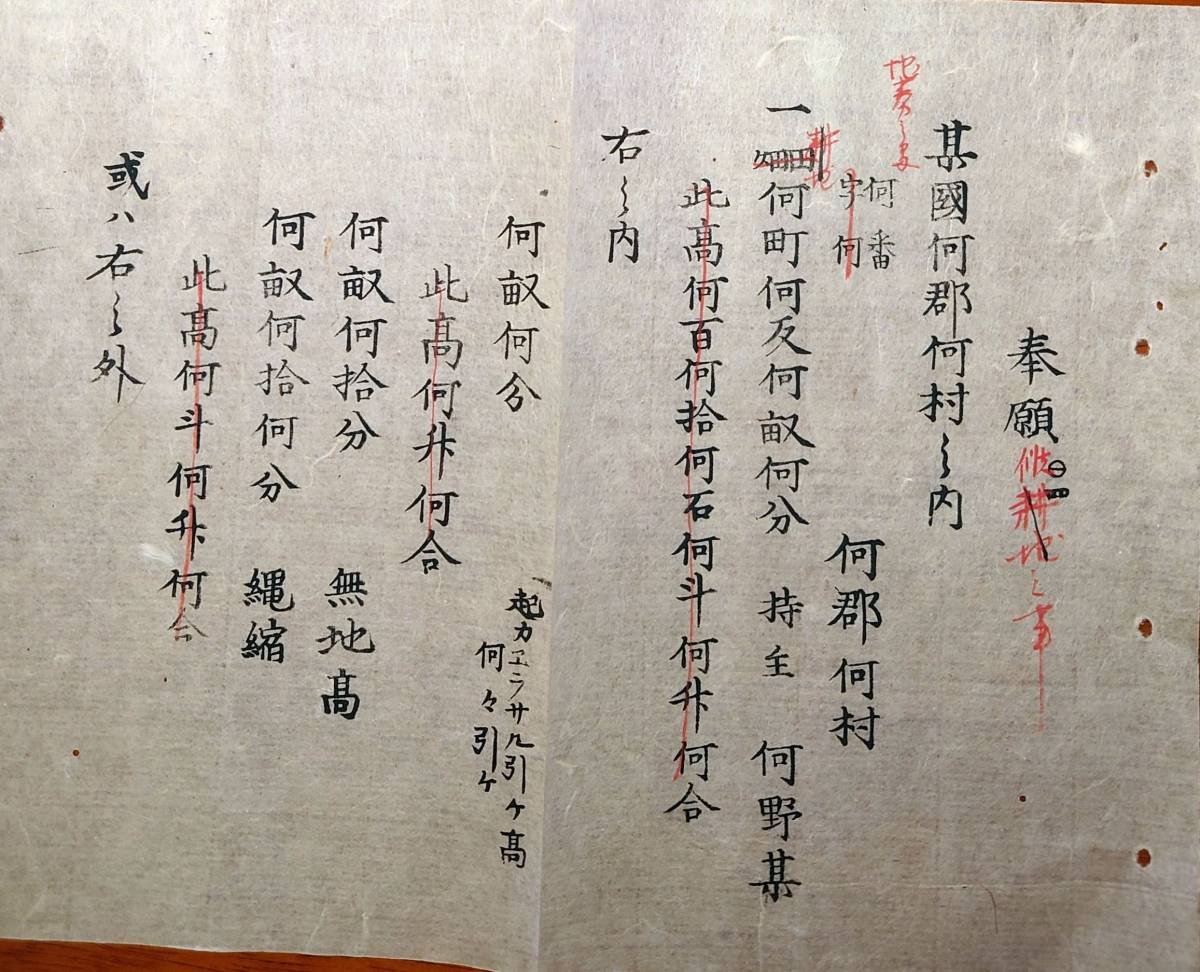 奉願
耕地之事
某國何郡何村之内
何番
字何
何郡何村
一
耕地
何町何反何畝何分 持主 何野某
此高何百何拾何石何斗何升何合
右之内
何畝何分
起カエラサル引ケ高
何々引ケ
此高何升何合
何畝何拾分 無地高
何畝何拾何分 縄縮
此高何斗何升何合
或ハ右之外